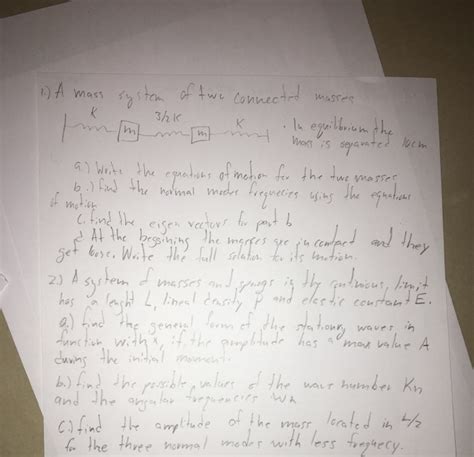 1.) A mass system of two connected masses
K 3/2 K K
m m
• In equilibrium the
mass is separated 10cm
a.) Write the equations of motion for the two masses
b.) find the normal modes frequecies using the equations
of motion
c. find the eigen vectors for part b
d At the beggining the masses are in contact and they
get Write the full solution for its motion.
2.) A system of masses and springs in the continuous, limit
has a lenght L, lineal density ρ and elastic constant E.
a.) find the general form of the stationary waves in
function with x, if the amplitude has a max value A
during the initial moment.
b.) find the possible values of the wave number Kn
and the angular frequencies Wn
C.) find the amplitude of the mass located in L/2
for the three normal modes with less freqnecy.